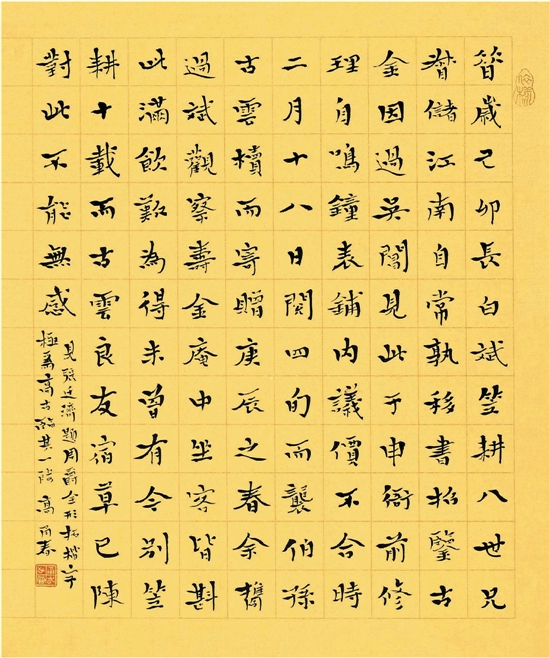 昔歲己卯長白斌笠耕八世兄
督儲江南自常孰移書招鑒古
金因過吳閶見此于申衙前修
理自鳴鐘表鋪內議價不合時
二月十八日閱四旬而襲伯孫
古雲櫝而寄贈庚辰之春余攜
過斌觀察壽金庵中坐客皆斟
此滿飲歎為得未曾有今別笠
耕十載而古雲良友宿草已陳
對此不能無感
見張廷濟題周爵全形拓
極為高古臨其一段 高